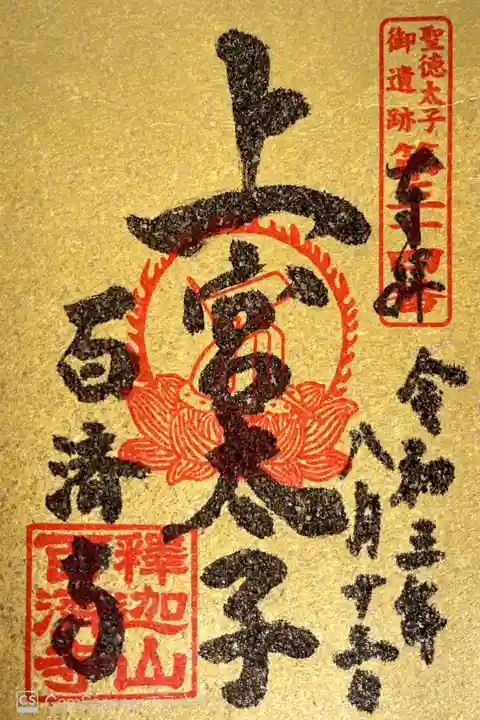 聖徳太子
御遺跡
第三十四番
奉拝
令和三年
八月十五日
上宮太子
百済寺
釋迦山
百済寺
CS CamScanner